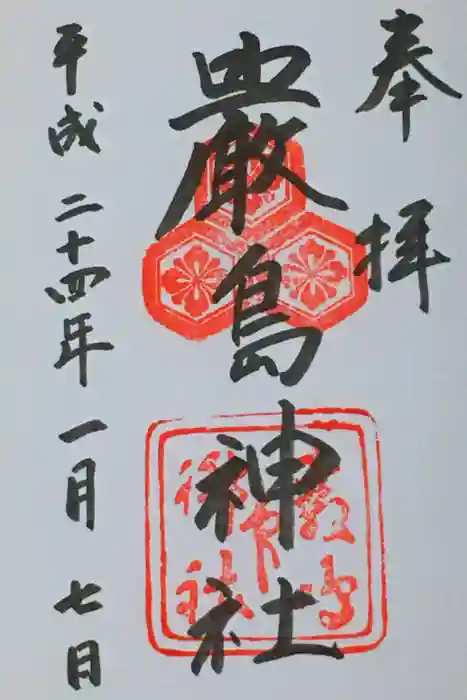 奉拝
嚴島神社
平成二十四年一月七日